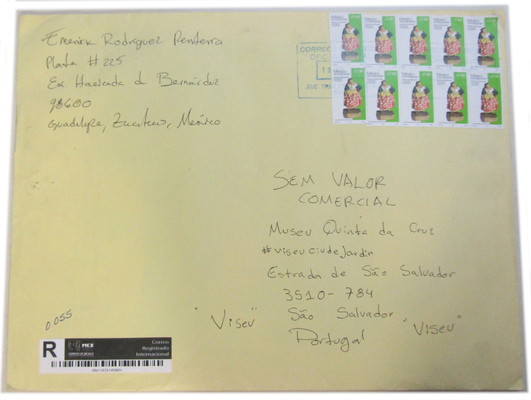 Rodriguez
Planta #225
Ex Hacienda de Bernárdez
98600
Guadalupe, Zacatecas, México
CORREO
SEM VALOR
COMERCIAL
Museu Quinta da Cruz
#viseuciudejardin
Estrada de São Salvador
3510-784
São Salvador
"Viseu" "Viseu"
Portugal
0055
R
MEX
Correo
Registrado
Internacional